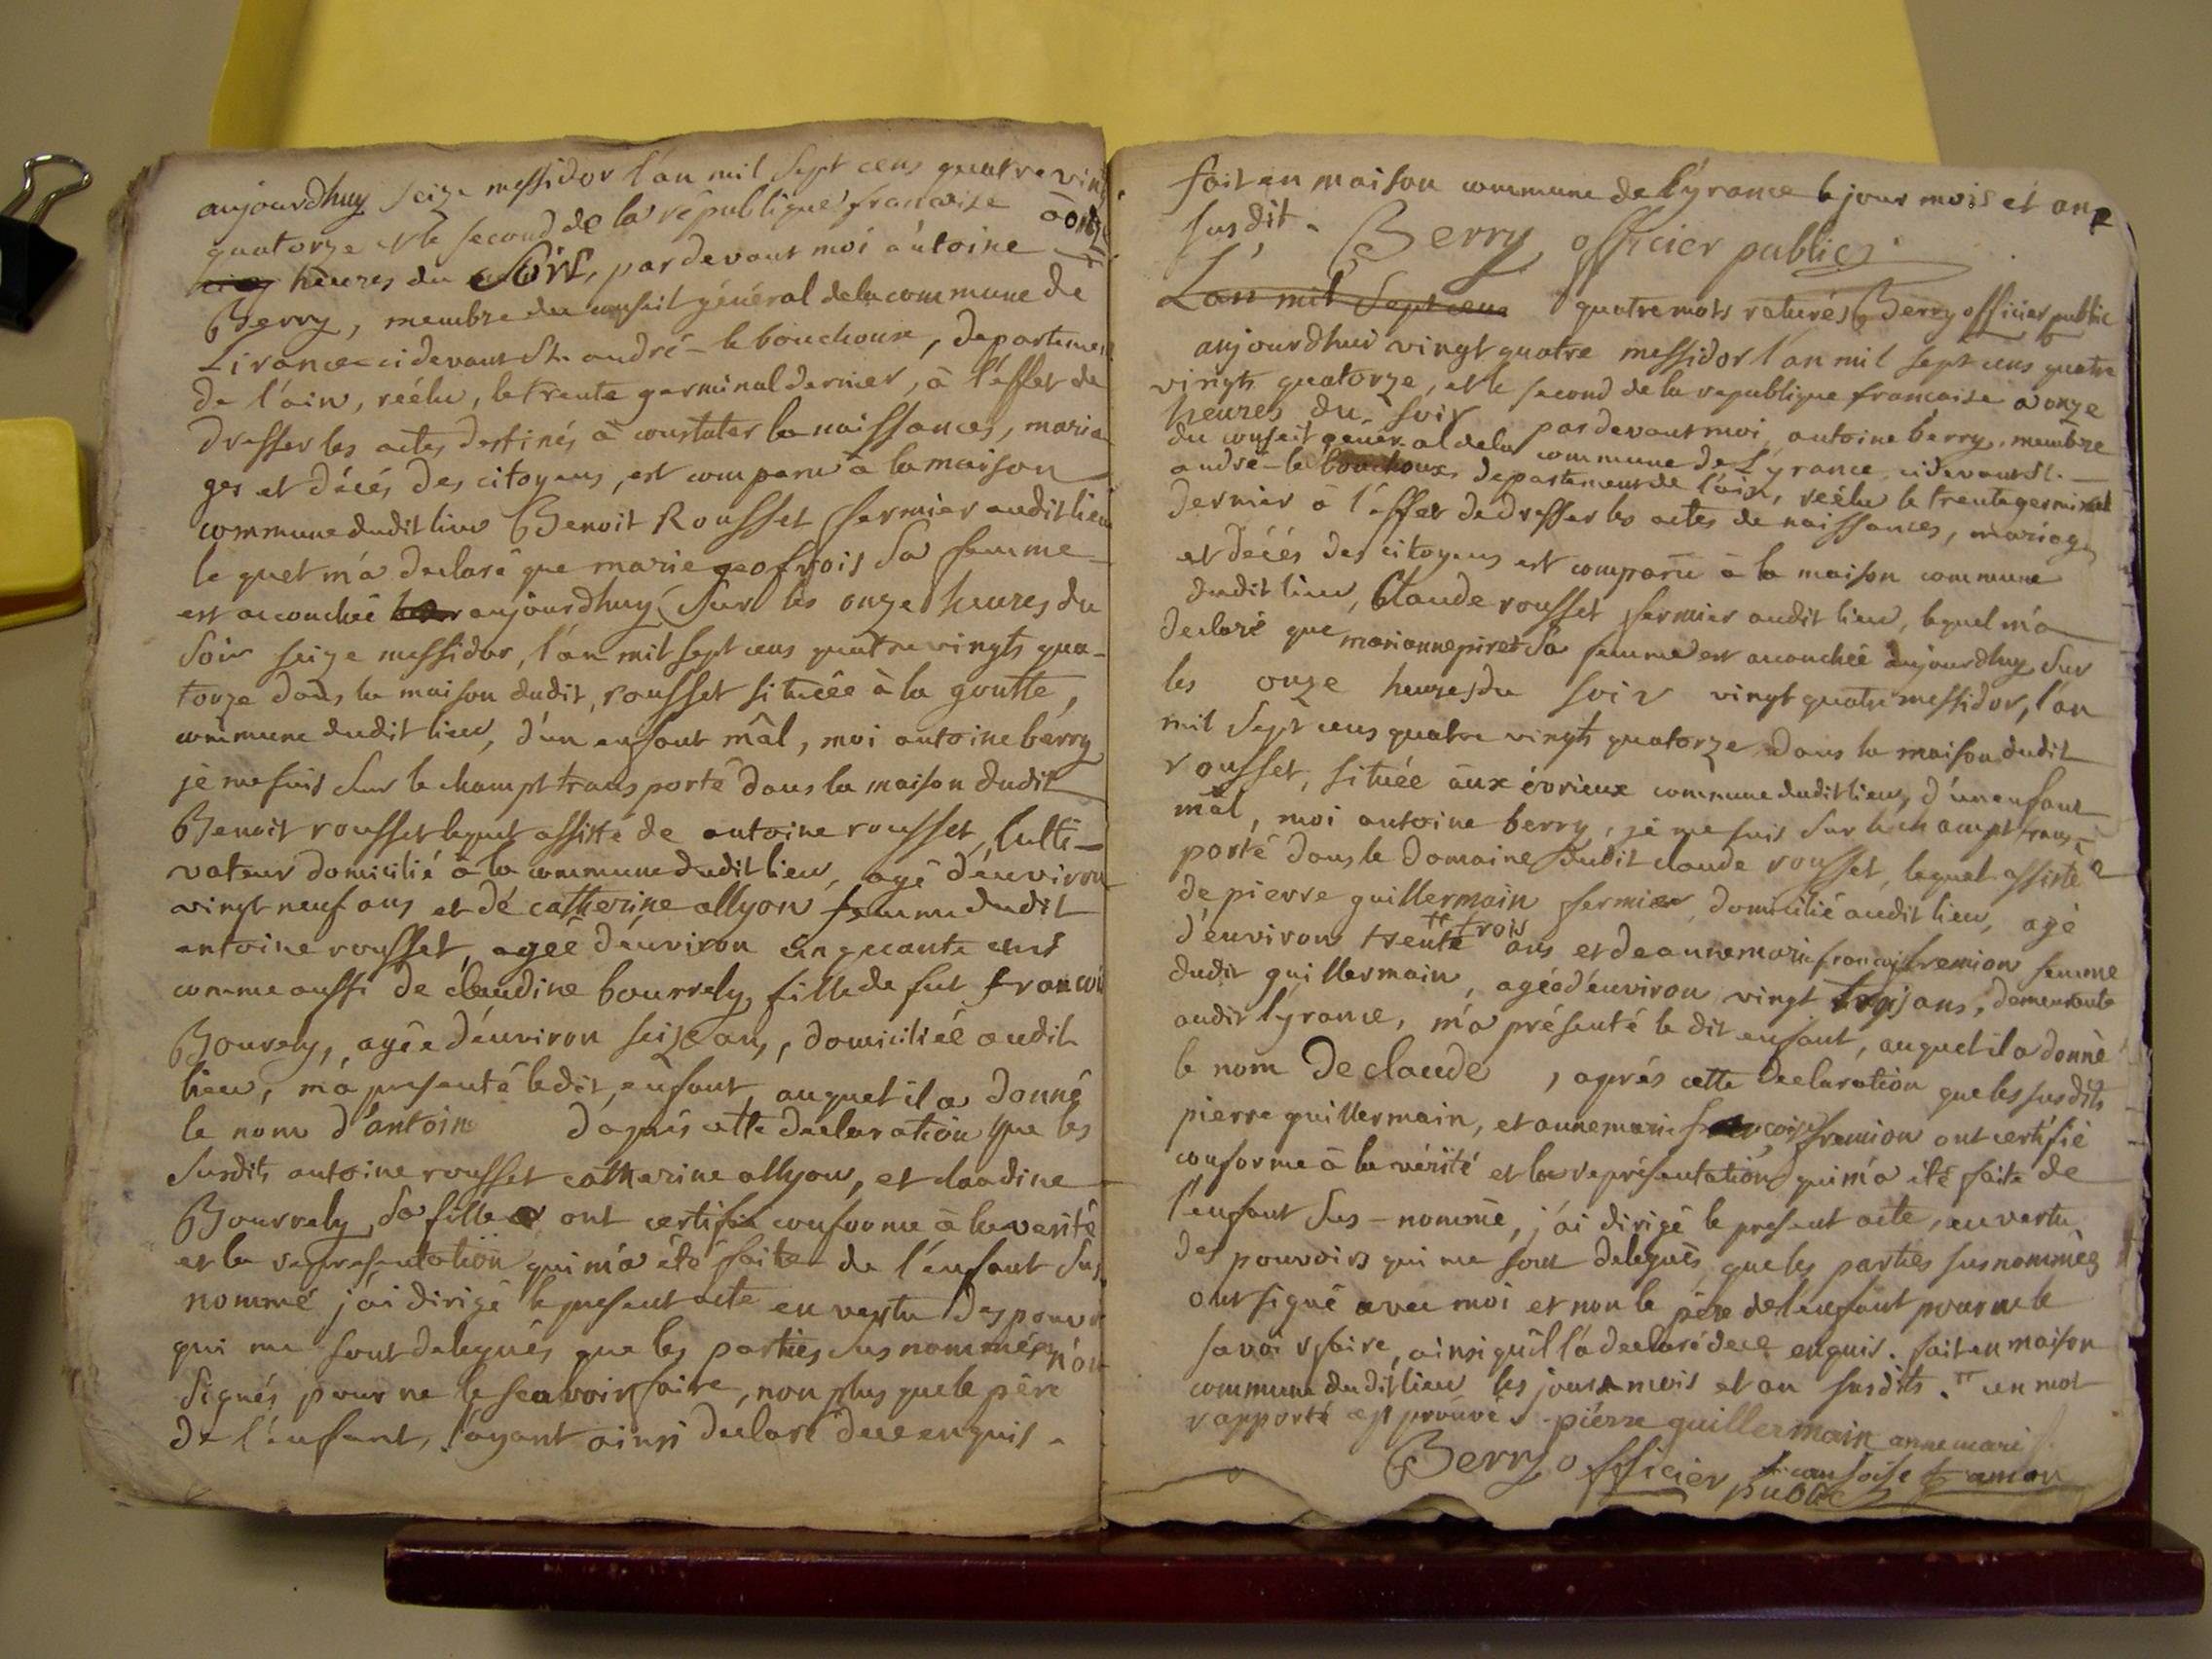 aujourdhuy seize messidor l'an mil sept cens quatre vingt
quatorze et le second de la république francoise à onze
heures du soir, pardevant moi antoine
Berry, membre du conseil général dela commune de
Lirance cidevant St. andré-le bouchoux, departement
de l'ain, réélu, le trente germinal dernier, à l'effet de
dresser les actes destinés à constater les naissances, maria
ges et décés des citoyens, est comparu à la maison
commune dudit lieu Benoit Rousset fermier audit lieu
le quel m'a declaré que marie geofrois sa femme
est accouchée aujourdhuy sur les onze heures du
soir seize messidor, l'an mil sept cens quatre vingts qua-
torze dans la maison dudit rousset situéée à la goutte,
commune dudit lieu, d'un enfant mâl, moi antoine berry
je me suis sur le champt transporté dans la maison dudit
Benoit rousset lequel assisté de antoine rousset, culti-
vateur domicilié à la commune dudit lieu, agé d'environ
vingt neuf ans et de catherine allyon femme dudit
antoine rousset, agéé d'environ cinquante ans
comme aussi de claudine bourrely, fille de fut francoi
Bourely, agée d'environ seize ans, domiciliéé audit
lieu, m'a presenté ledit enfant, auquel il a donné
le nom d'antoine d'aprés cette declaration que les
susdits antoine rousset catherine allyon, et claudine
Bourrely, sa fille ont certifié conforme à la verité
et la representation qui m'a été faite de l'enfant sus
nommé j'ai dirigé le present acte en vertu des pouvo
qui me sont delegués que les parties sus nommées n'on
signés pour ne le scavoir faire, non plus que le père
de l'enfant, l'ayant ainsi declaré dece enquis.
fait en maison commune de Lyrance le jour mois et an
susdit. Berry officier public
L'an mil sept cens quatre mots raturés Berry officier public
aujourdhui vingt quatre messidor l'an mil sept cens quatre
vingts quatorze, et le second de la republique francaise a onze
heures du soir pardevant moi antoine berry, membre
du conseil général dela commune de Lyrance cidevant St.
andré-le bouchoux, departement de l'ain, réélu le trente germinal
dernier à l'effet de dresser les actes de naissances, mariages
et décés des citoyens est comparu à la maison commune
dudit lieu, Claude rousset fermier audit lieu, lequel m'a
declaré que marianne piret sa femme est accouchéé aujourdhuy sur
les onze heures du soir vingt quatre messidor, l'an
mil sept cens quatre vingts quatorze dans la maison dudit
rousset, située aux évorieux commune dudit lieu, d'un enfant
mâl, moi antoine berry, je me suis sur le champt trans-
porté dans le domaine dudit claude rousset, lequel assisté
de pierre guillermain fermier domicilié audit lieu, agé
d'environ trente trois ans et de anne marie francoise fremion femme
dudit guillermain, agéé d'environ vingt trois ans, demeurante
audit lyrance, m'a présenté le dit enfant, auquel il a donné
le nom De claude, aprés cette declaration que les susdits
pierre guillermain, et anne marie francoise fremion ont certifié
conforme à la vérité et la représentation qui m'a été faite de
l'enfant sus-nommé, j'ai dirigé le present acte, en vertu
des pouvoirs qui me sont delegués que les parties sus nommées
ont signé avec moi et non le père de l'enfant pour ne le
savoir faire, ainsi qu'il l'a declaré dece enquis. fait en maison
commune dudit lieu les jour mois et an susdits. un mot
rapporté approuvé. piérre guillermain anne marie
fransoise framion
Berry officier public